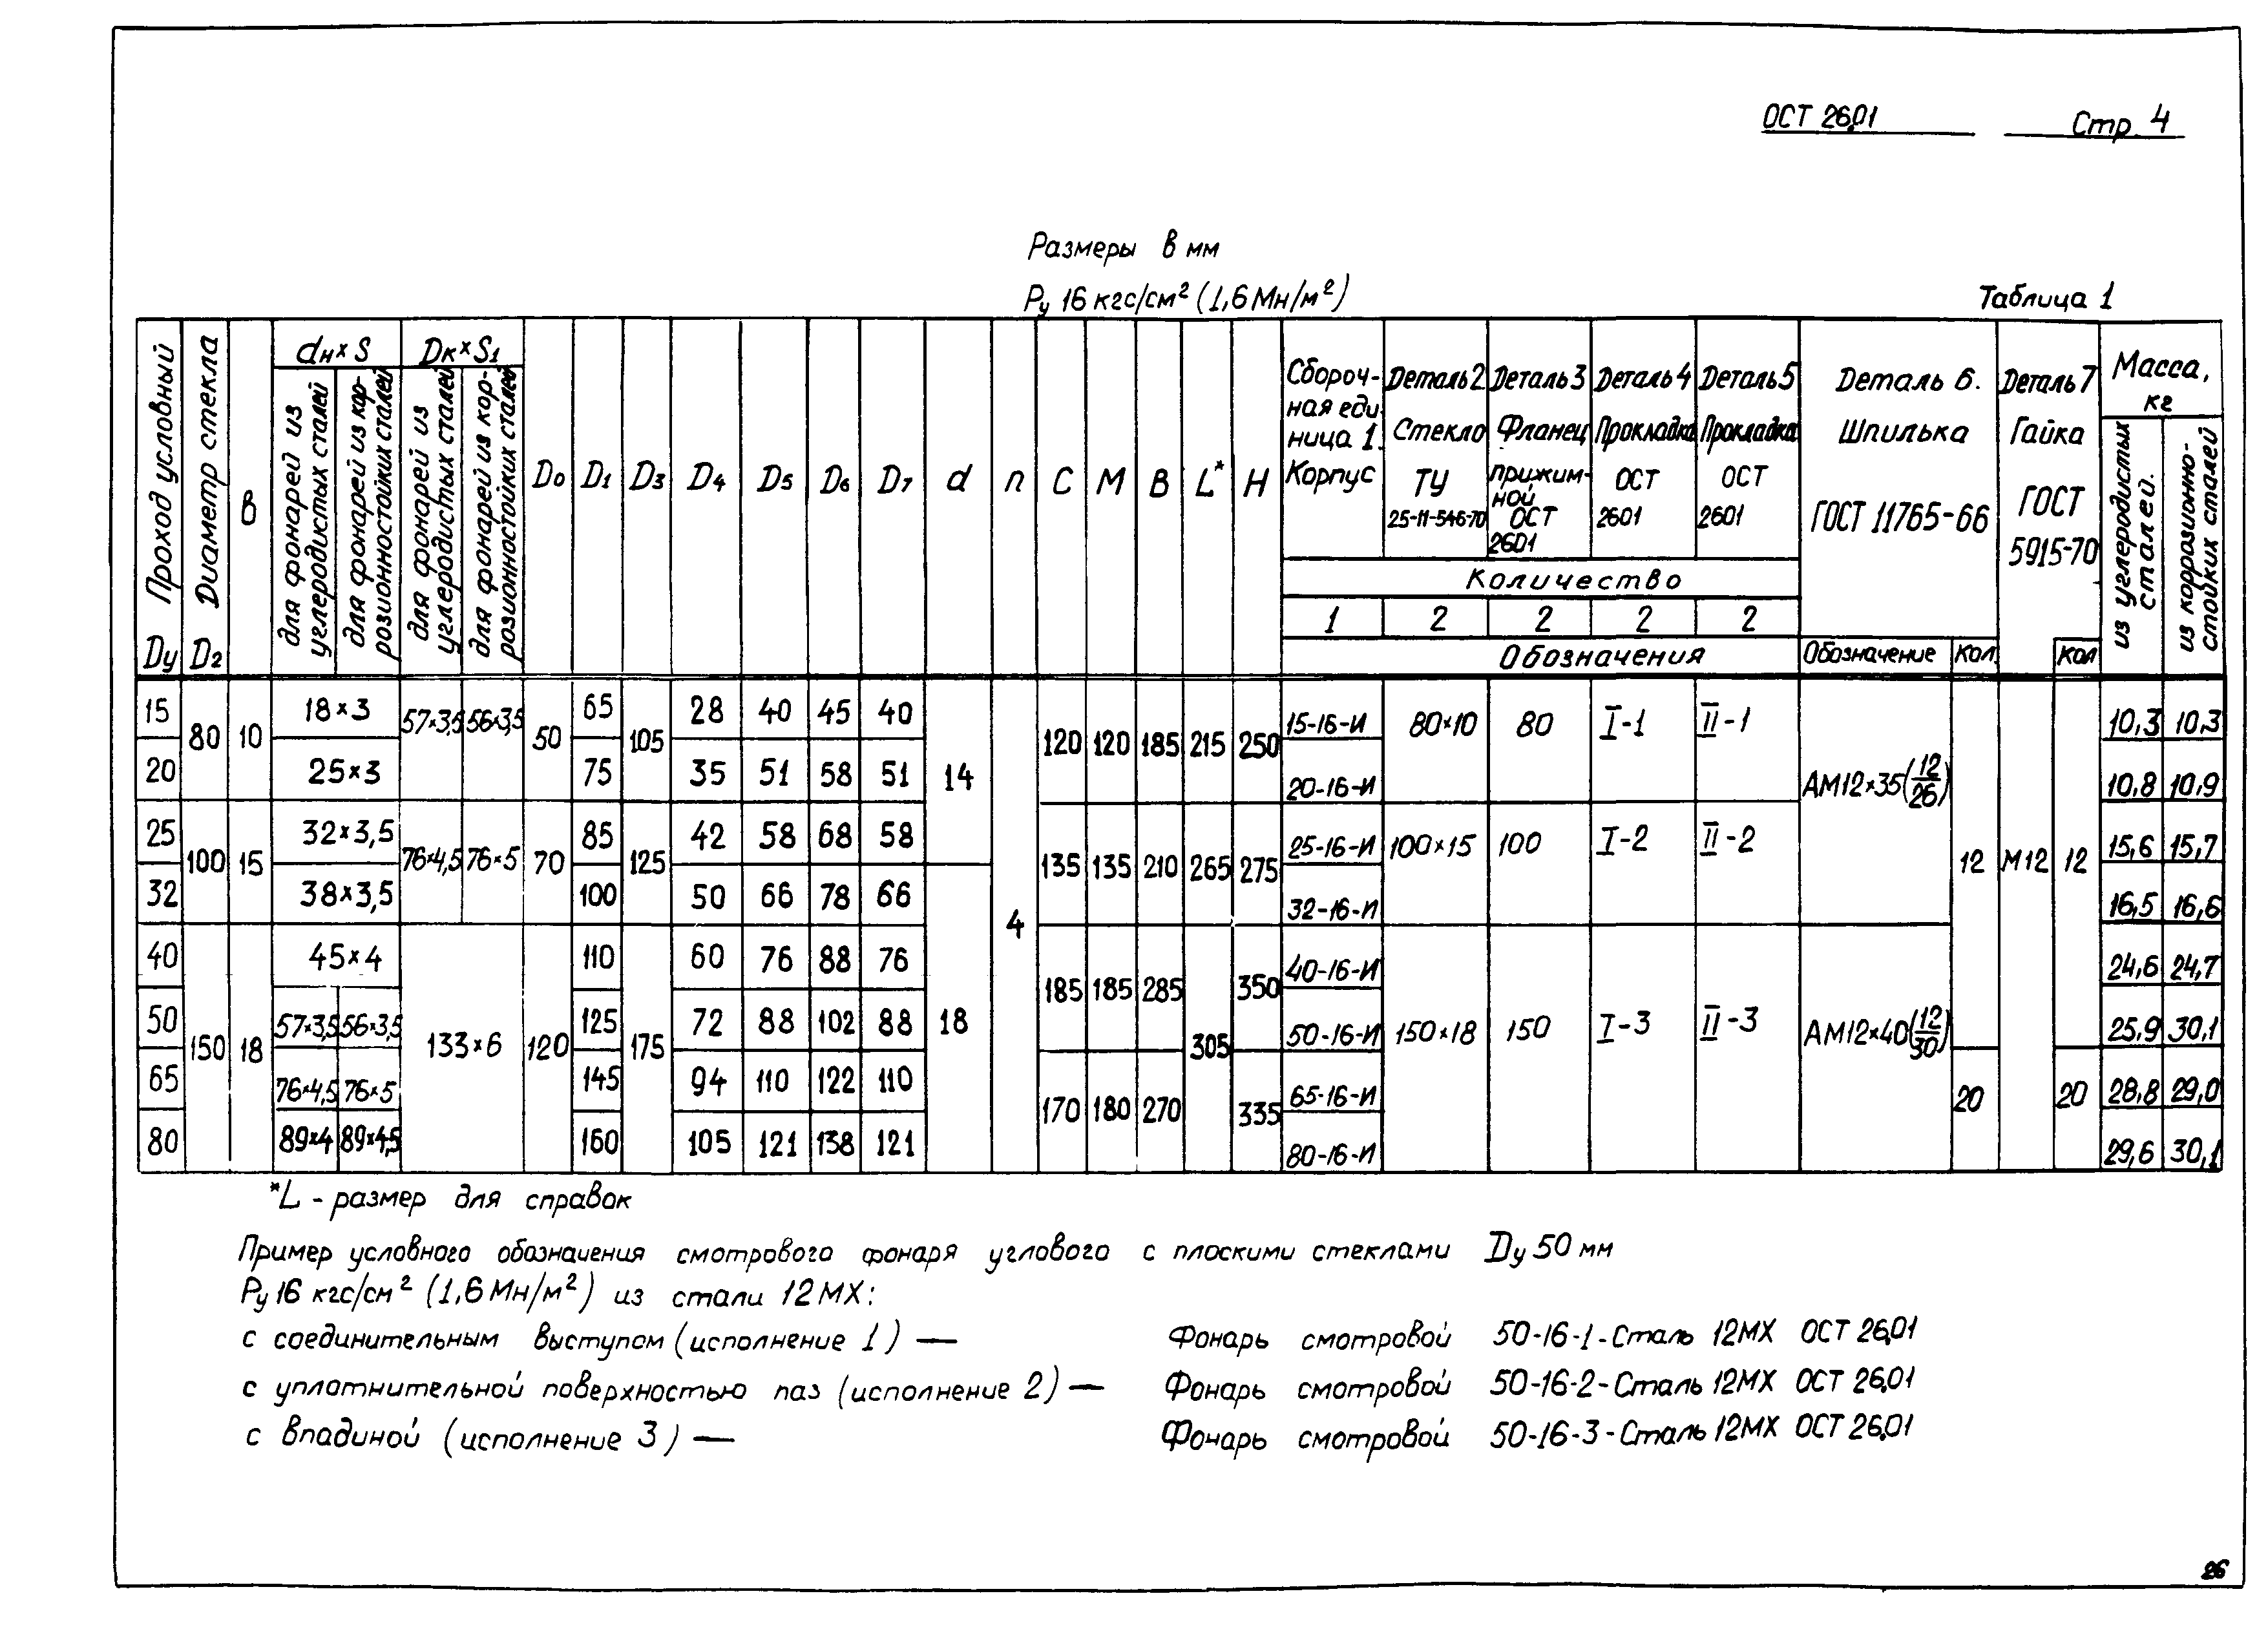 ОСТ 26.01 Стр. 4
Размеры в мм
Ру 16 кгс/см² (1,6 Мн/м²) Таблица 1
Проход условный Dу
Диаметр стекла D2
в
dн×S
для фонарей из углеродистых сталей
для фонарей из коррозионностойких сталей
Dк×S1
для фонарей из углеродистых сталей
для фонарей из коррозионностойких сталей
D0 D1 D3 D4 D5 D6 D7 d n C M B L* H
Сбороч-
ная еди-
ница 1.
Корпус
Деталь 2
Стекло
ТУ
25-11-546-70
Деталь 3
Фланец
прижим-
ной
ОСТ
2601
Деталь 4
Прокладка
ОСТ
2601
Деталь 5
Прокладка
ОСТ
2601
Деталь 6.
Шпилька
ГОСТ 11765-66
Деталь 7
Гайка
ГОСТ
5915-70
Масса,
кг
из углеродистых сталей.
из коррозионно-стойких сталей
Количество
1 2 2 2 2
Обозначения Обозначение Кол. Кол
15 80 10 18×3 57×3,5 56×3,5 50 65 105 28 40 45 40 14 4 120 120 185 215 250 15-16-И 80×10 80 I-1 II-1 АМ12×35(12/26) 12 М12 12 10,3 10,3
20 25×3 75 35 51 58 51 20-16-И 10,8 10,9
25 100 15 32×3,5 76×4,5 76×5 70 85 125 42 58 68 58 135 135 210 265 275 25-16-И 100×15 100 I-2 II-2 15,6 15,7
32 38×3,5 100 50 66 78 66 18 32-16-И 16,5 16,6
40 150 18 45×4 133×6 120 110 175 60 76 88 76 185 185 285 305 350 40-16-И 150×18 150 I-3 II-3 АМ12×40(12/30) 24,6 24,7
50 57×3,5 56×3,5 125 72 88 102 88 50-16-И 25,9 30,1
65 76×4,5 76×5 145 94 110 122 110 170 180 270 335 65-16-И 20 20 28,8 29,0
80 89×4 89×4,5 160 105 121 138 121 80-16-И 29,6 30,1
*L - размер для справок
Пример условного обозначения смотрового фонаря углового с плоскими стеклами Dу 50 мм
Ру 16 кгс/см² (1,6 Мн/м²) из стали 12МХ:
с соединительным выступом (исполнение 1) — Фонарь смотровой 50-16-1-Сталь 12МХ ОСТ 26.01
с уплотнительной поверхностью паз (исполнение 2) — Фонарь смотровой 50-16-2-Сталь 12МХ ОСТ 26.01
с впадиной (исполнение 3) — Фонарь смотровой 50-16-3-Сталь 12МХ ОСТ 26.01
26